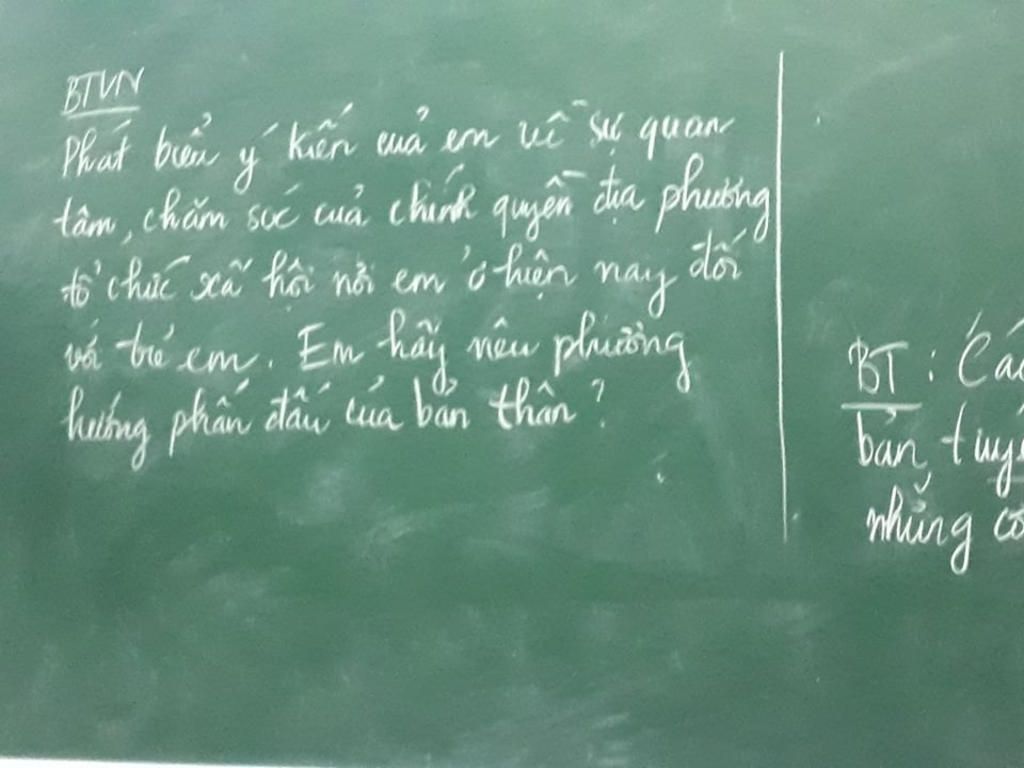 BTVN
Phát biểu ý kiến của em về sự quan
tâm, chăm sóc của chính quyền địa phương
tổ chức xã hội nơi em ở hiện nay đối
với trẻ em. Em hãy nêu phương
hướng phấn đấu của bản thân?
BT: Các
bản tuyê
những cô